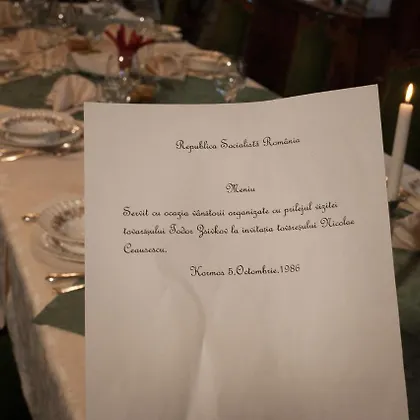 Republica Socialistă România
Meniu
Servit cu ocazia vânătorii organizate cu prilejul vizitei
tovarșului Todor Zsivkov la invitația tovsreșului Nicolae
Ceausescu.
Kormos 5.Octombrie.1986